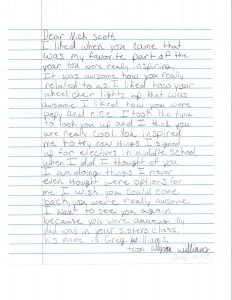 Dear Nick Scott,
I liked when you came that
was my favorite part of the
year. You were really inspiring.
It was awsome how you really
related to us. I liked how your
wheel chair lights up that was
awsome. I liked how you were
pepy and nice. I took the time
to look you up and I think you
are really cool. You inspired
me to try new things. I signed
up for electives in middle school,
when I did I thought of you.
I am doing things I never
even thought were options for
me. I wish you could come
back, you were really awsome.
I want to see you again
because you were amazing. My
dad was in your sisters class,
his name is Greg Williams.
from Alyson Williams